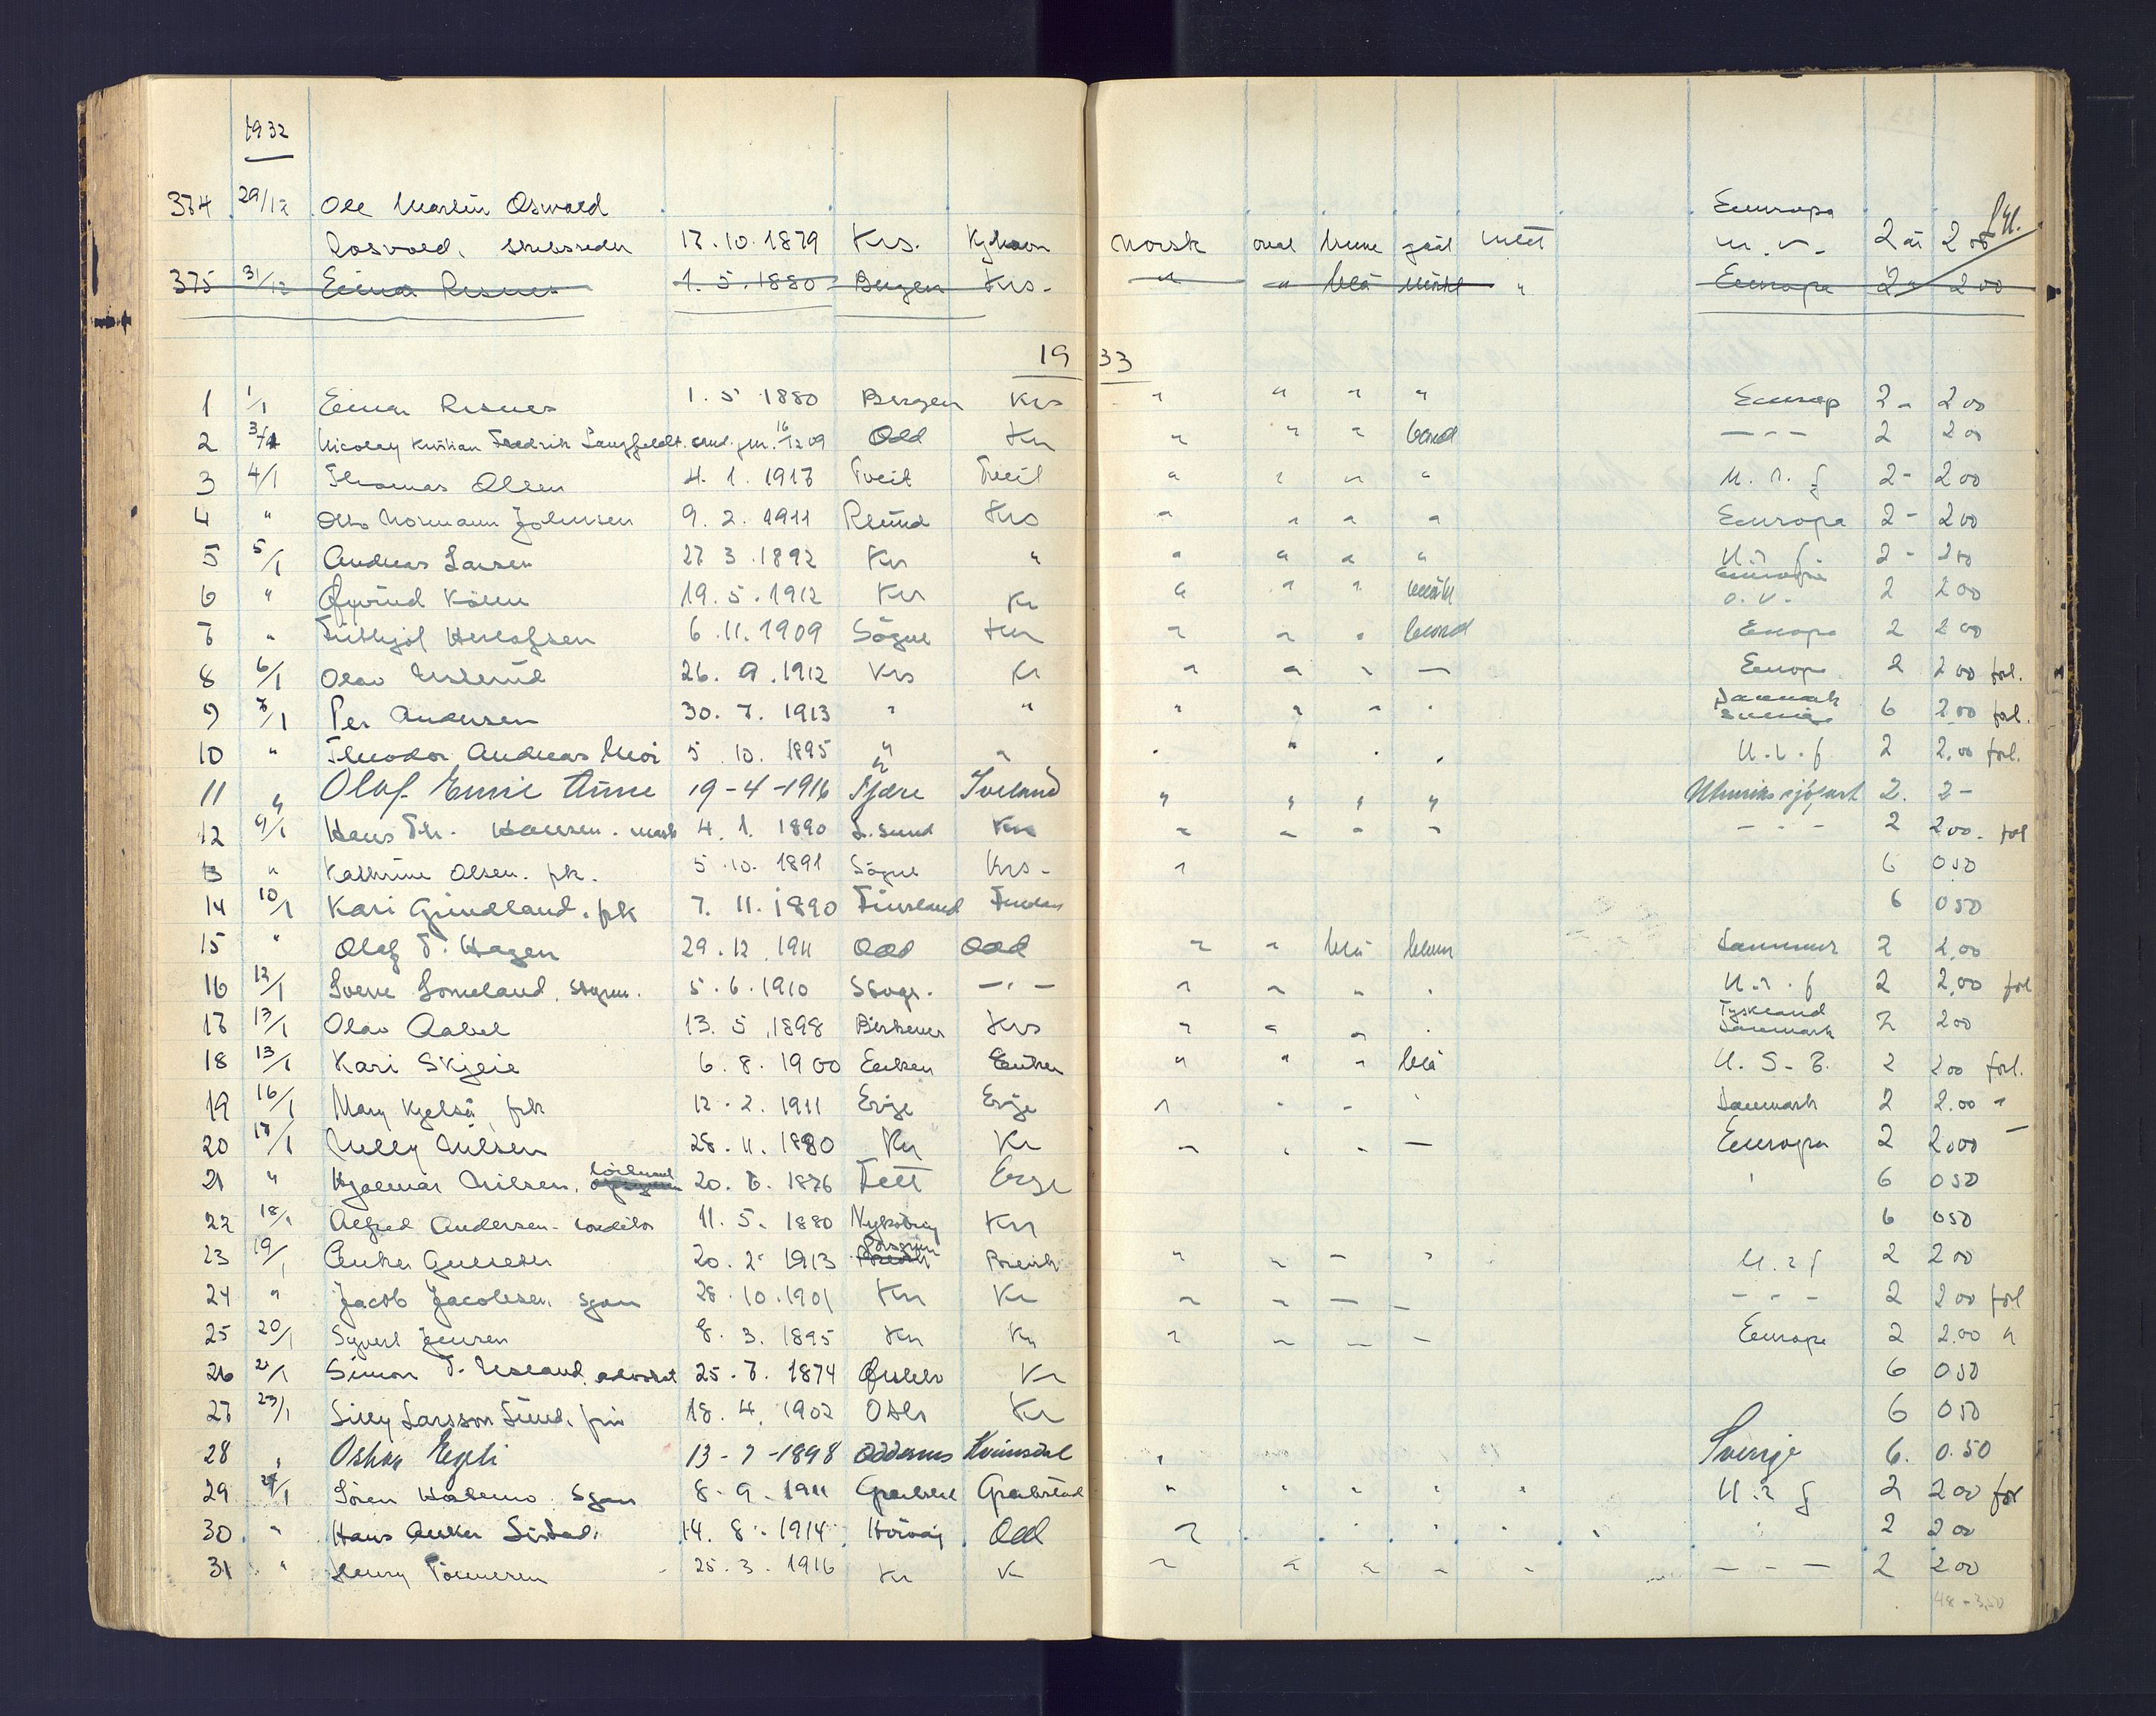 1932
374 29/12 Ole Martin Oswald Europa
Rosvold, skibsreder 17.10.1879 Krs. Kjhavn norsk oval brune grått u. v. 2 år 2 00
375 31/12 Einar Resnes 1.5.1880 Bergen Krs. " " blå mørkt " Europa 2 " 2 00
1933
1 1/1 Einar Resnes 1.5 1880 Bergen Krs " " " " Europ 2 - 2 00
2 3/1 Nicolay Kristian Fredrik Langfeldt cand. jur. 16/12 09 Odd Kr " " " blond - - - 2 2 00
3 4/1 Thomas Olsen 4.1.1917 Tveit Tveit " " " " U. r. f 2 - 2 00
4 " Otto Normann Johnsen 9.2.1911 Krs " " " " Europa 2 - 2 00
5 5/1 Andreas Larsen 27 3.1892 Kr " " " " " U. r. f. 2 - 2 00
6 " Øyvind 19.5.1912 Kr Kr " " " mørkt Europa o. v. 2 2 00
7 " Fridtjof Herlofsen 6.11.1909 Søgne Kr " " " blond Europa 2 2 00
8 6/1 Olav 26.9.1912 Krs Kr " " " — Europa 2 2 00 forl.
9 7/1 Per Andersen 30.7.1913 " " " " " " Danmark Sverige 6 2.00 forl.
10 " Theodor Andreas Moi 5.10.1895 " " " " " " U. r. f 2 2.00 forl.
11 " Olaf Emil Aune 19-4-1916 Iveland " " " " Utenriks sjøfart 2. 2-
12 9/1 Hans Th. Hansen. mask 4.1.1890 L.sund Krs " " " " - - - 2 2 00. forl
13 " Kathrine Olsen. frk. 5.10.1891 Søgne Krs - " 6 0 50
14 10/1 Kari Grindland. frk 7.11.1890 Finsland Finsland 6 0 50
15 " Olaf T. Hagen 29.12.1911 Odd Odd " " blå blond 2 2,00
16 12/1 Sverre Lomeland, styrm. 5.6.1910 - " - " " " " U. r. f 2 2,00 forl
17 13/1 Olav Aabel 13.5.1898 Birkenes Krs " " " " Tyskland Danmark 2 2 00
18 13/1 Kari Skjeie 6.8.1900 " " " blå U. S. 2 2 00 forl.
19 16/1 Mary Kjelså frk 12.2.1911 Evje Evje " " - " Danmark 2 2.00 "
20 17/1 Nelly Nilsen 28.11.1880 Kr Kr - " " — Europa 2 2.00 —
21 " Hjalmar Nilsen, 20.7.1876 Evje " 6 0 50
22 18/1 Alfred Andersen - konditor 11.5.1880 Nykøbing Kr 6 0 50
23 19/1 Anker Gullesen 20.2.1913 Porsgrunn Brevik " " — " U. r f 2 2 00
24 " Jacob Jacobsen, sjøm 28.10.1901 Kr Kr - - — - - - - 2 2 00 forl
25 20/1 Syvert Jensen 8.3.1895 Kr Kr " - - - Europa 2 2.00 "
26 21/1 Simon T. Usland, advokat 25.7.1874 Kr 6 0 50
27 23/1 Lilly Larsson Lund. fru 18.4.1902 Oslo Kr 6 0 50
28 " Oskar Egeli 13-7-1898 Oddernes Kvinesdal " Sverige 6. 0.50
29 24/1 Søren Hålemo. Sjøm 8.9.1911 " " " " " U. r f 2 2 00 forl
30. " Hans Anker Sirdal. 14.8.1914 Høivåg Odd " " " " " 2 2 00
31 " Henry Tønnesen 25.3.1916 Kr K " " " " " - - - 2 2 00